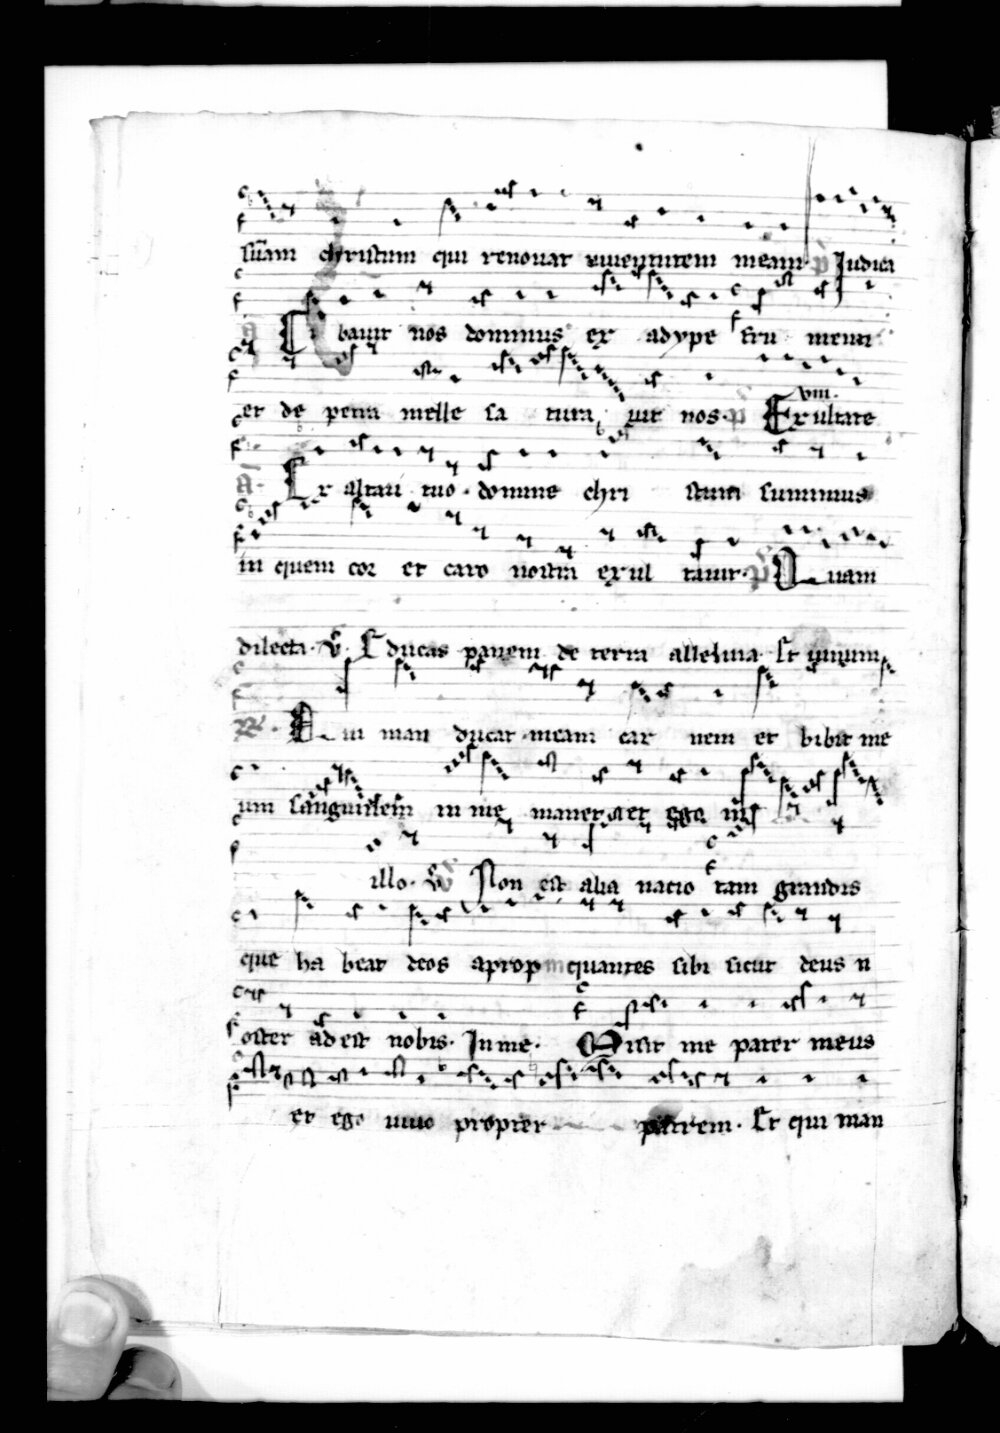 suam christum qui renouat iuuentutem meam. p̄ Iudica
a Ci bauit nos dominus ex adype fru menti
et de petra melle sa tura uit nos. p̄ Exultate
viii.
a. Ex altari tuo. domine chri stum sumimus
in quem cor et caro nostra exul tauit. p̄ Quam
dilecta. v̄. Educas panem de terra alleluia. Et uinum
R. Qui man ducat meam car nem et bibit me
um sanguinem in me manet et ego in
illo. v̄ Non est alia nacio tam grandis
que ha beat deos apropinquantes sibi sicut deus n
oster adest nobis. In me. Misit me pater meus
et ego uiuo propter patrem. Et qui man